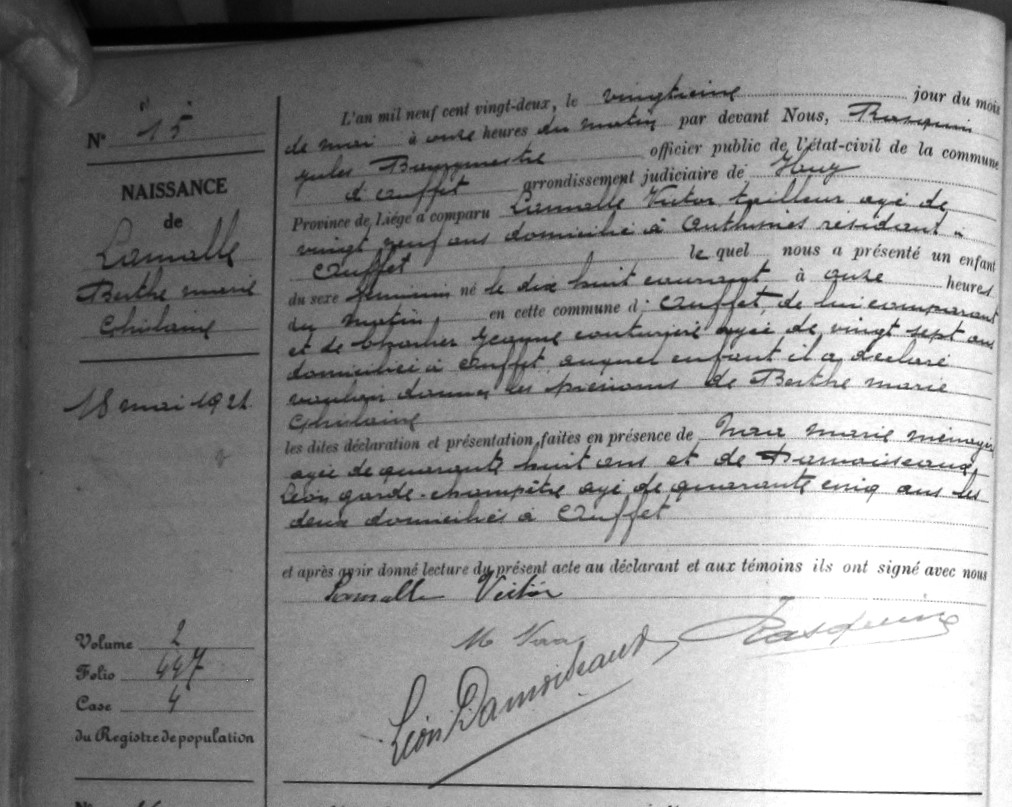 N° 15
NAISSANCE
de
Lamalle
Berthe Marie
Ghislaine
18 mai 1921
Volume 2
Folio 447
Case 4
du Registre de population
L'an mil neuf cent vingt-deux, le vingtième jour du mois
de mai à onze heures du matin par devant Nous, Rasquin
Jules Bourgmestre officier public de l'état-civil de la commune
d'Ouffet arrondissement judiciaire de Huy
Province de Liége a comparu Lamalle Victor tailleur agé de
vingt neuf ans domicilié à Anthisnes résidant à
Ouffet le quel nous a présenté un enfant
du sexe féminin né le dix huit courant à onze heures
du matin, en cette commune d'Ouffet, de lui comparant
et de Jeanne couturière agée de vingt sept ans
domiciliée à Ouffet auquel enfant il a déclaré
vouloir donner les prénoms de Berthe Marie
Ghislaine
les dites déclaration et présentation faites en présence de Marie ménagère
agée de quarante huit ans et de Damoiseaux
Léon garde-champêtre agé de quarante cinq ans les
deux domiciliés à Ouffet
et après avoir donné lecture du présent acte au déclarant et aux témoins ils ont signé avec nous
Lamalle Victor
M
Léon Damoiseaux
Rasquin